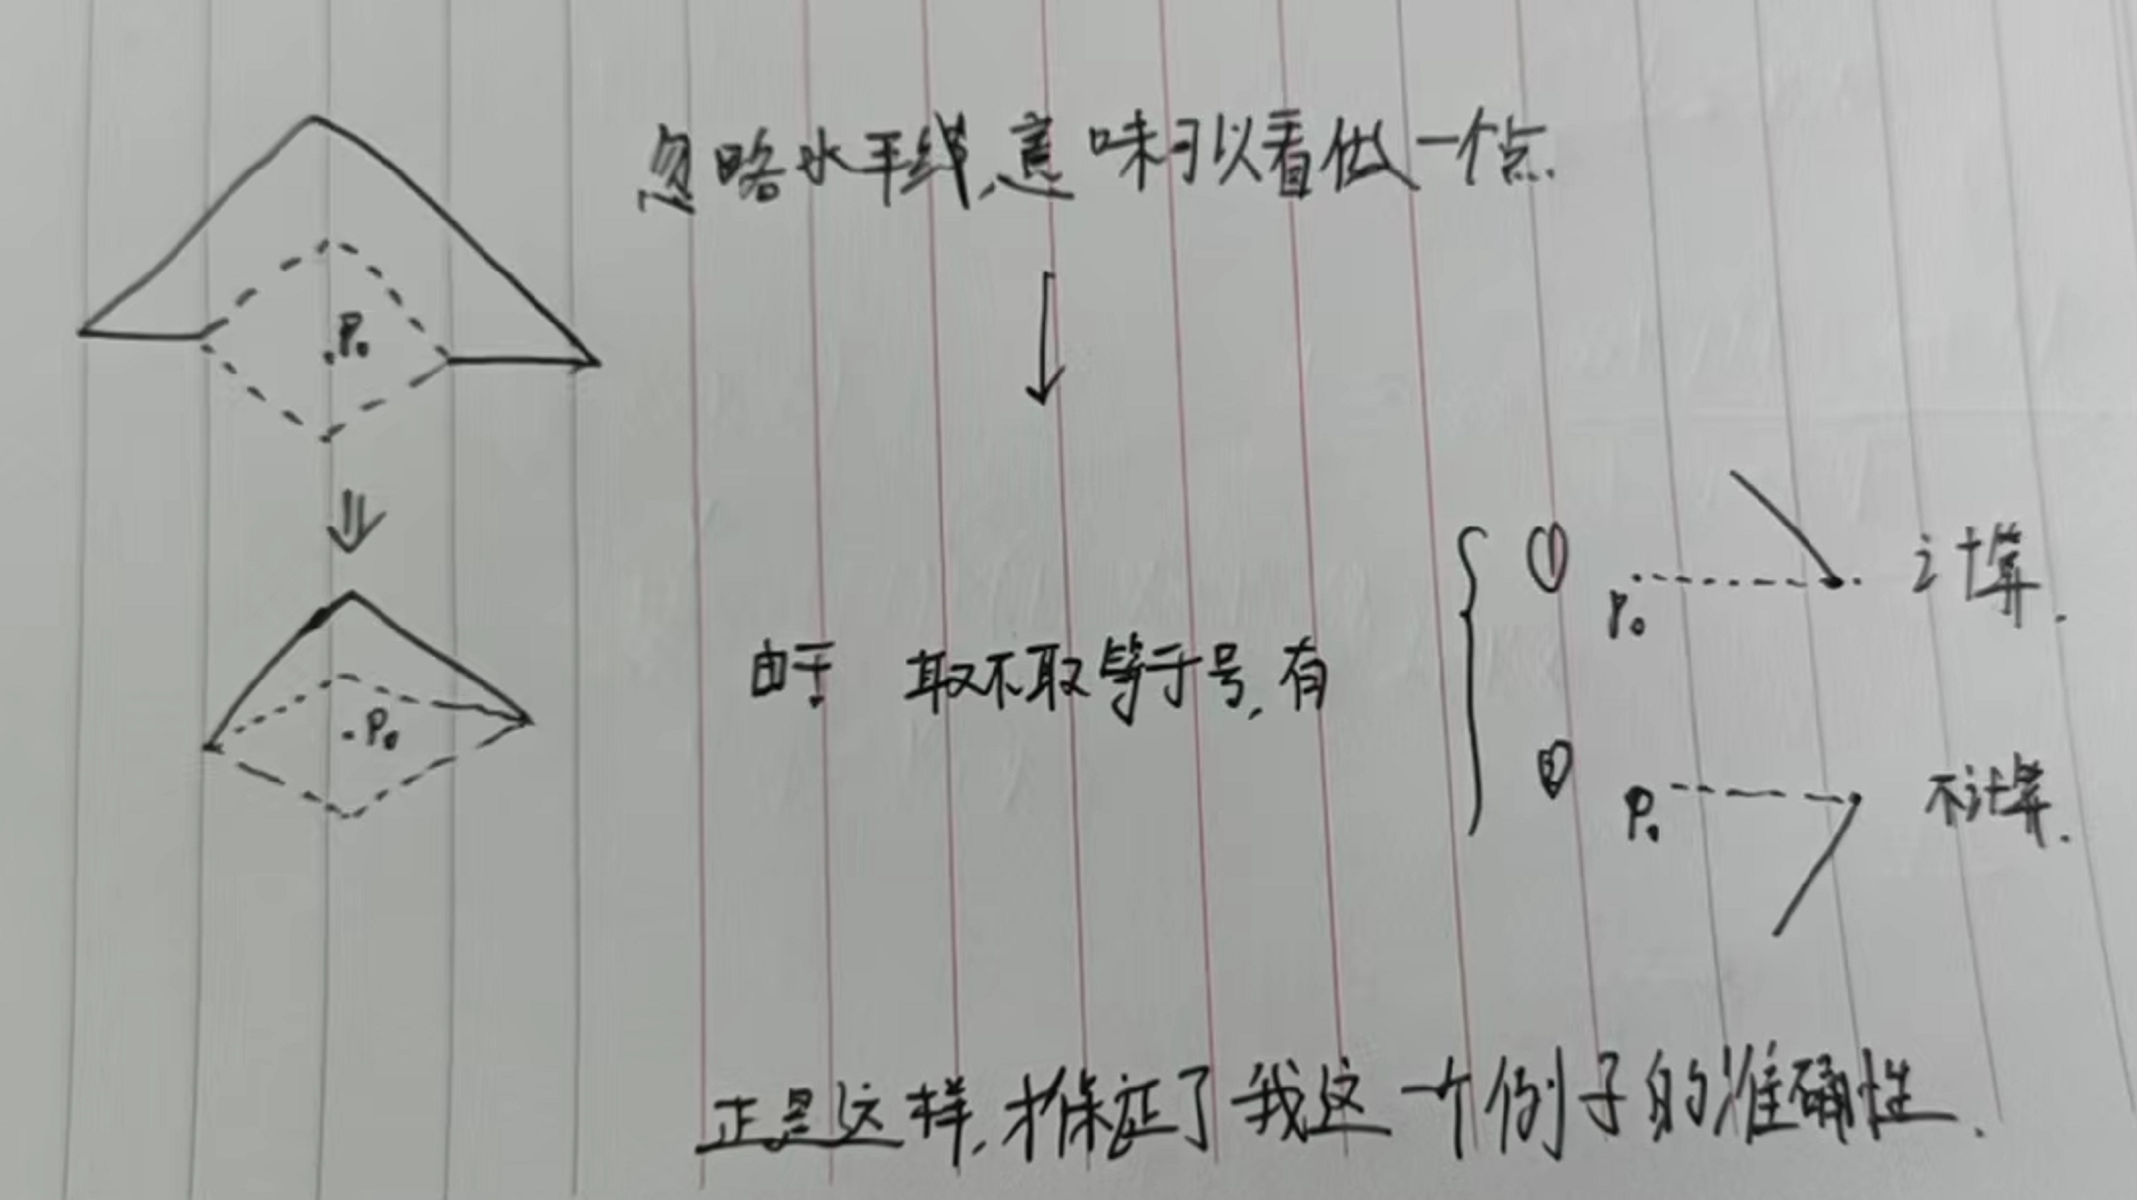 忽略水平线,意味可以看做一个点.
P₀
P₀
由于 取不取等于号,有
① P₀ 计算.
② P₀ 不计算.
正是这样,才保证了我这一个例子的准确性.